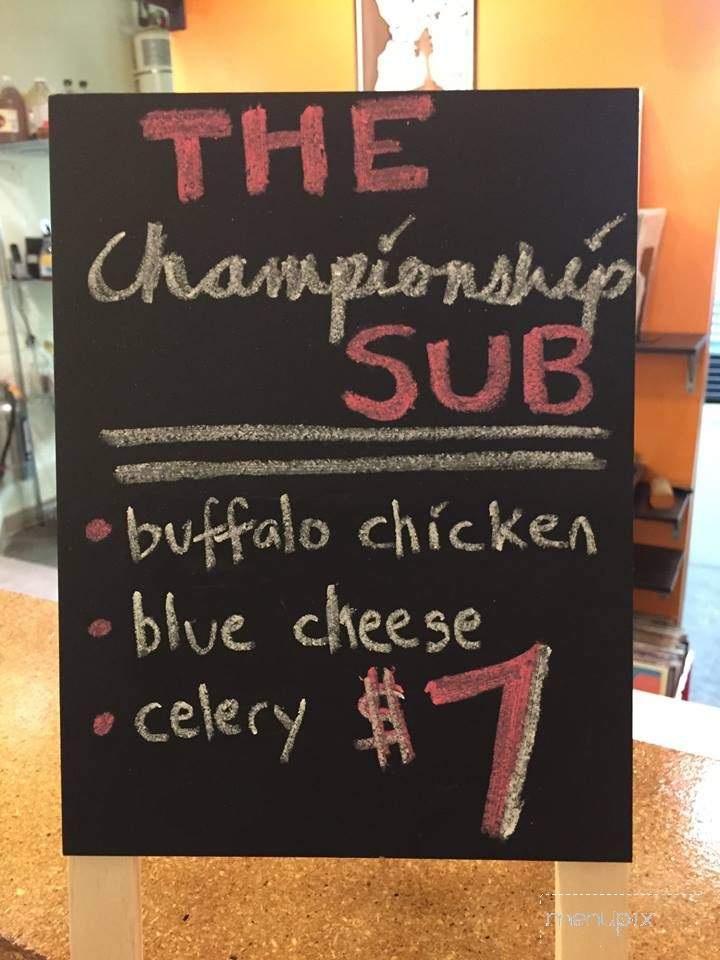 THE
Championship
SUB
• buffalo chicken
• blue cheese
• celery $7
menupix